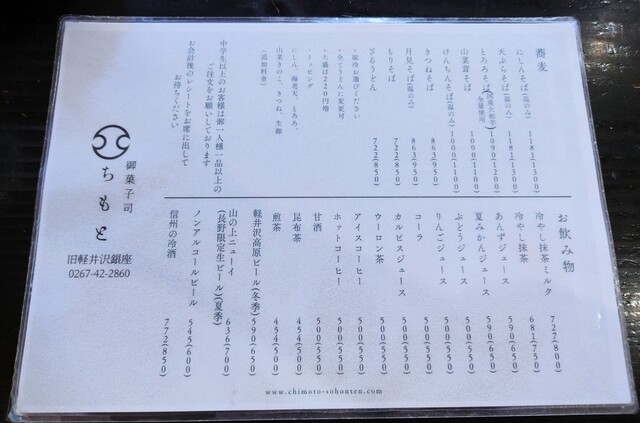 蕎麦
にしんそば(温のみ) 1181(1300)
天ぷらそば(温のみ) 1181(1300)
とろろそば(国産大和芋全量使用) 1090(1200)
山菜茸そば 1000(1100)
けんちんそば(温のみ) 1000(1100)
きつねそば 863(950)
月見そば(温のみ) 863(950)
もりそば 772(850)
ざるうどん 772(850)
・温冷お選びください
・全てうどんに変更可
・大盛は220円増
・トッピング
にしん、海老天、とろろ、
山菜きのこ、きつね、生卵
(追加料金)
中学生以上のお客様は御一人様一品以上の
ご注文をお願いしております
お会計後のレシートをお席に出して
お待ちください
お飲み物
冷やし抹茶ミルク 727(800)
冷やし抹茶 681(750)
あんずジュース 590(650)
夏みかんジュース 590(650)
ぶどうジュース 500(550)
りんごジュース 500(550)
コーラ 500(550)
カルピスジュース 500(550)
ウーロン茶 500(550)
アイスコーヒー 500(550)
ホットコーヒー 500(550)
甘酒 500(550)
昆布茶 454(500)
煎茶 454(500)
軽井沢高原ビール(冬季) 590(650)
山の上ニューイ
(長野限定生ビール)(夏季) 636(700)
ノンアルコールビール 545(600)
信州の冷酒 772(850)
御菓子司
ちもと
旧軽井沢銀座
0267-42-2860
www.chimoto-sohonten.com